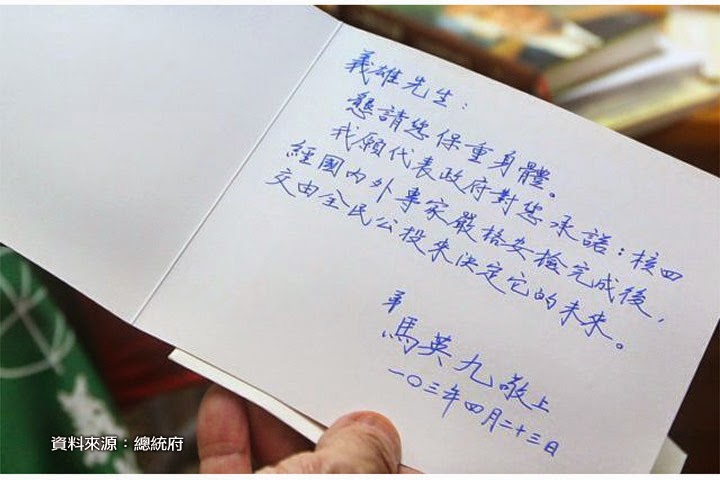 義雄先生：
懇請您保重身體。
我願代表政府對您承諾：核四
經國內外專家嚴格安檢完成後，
交由全民公投來決定它的未來。
弟
馬英九敬上
一〇三年四月二十三日
資料來源：總統府